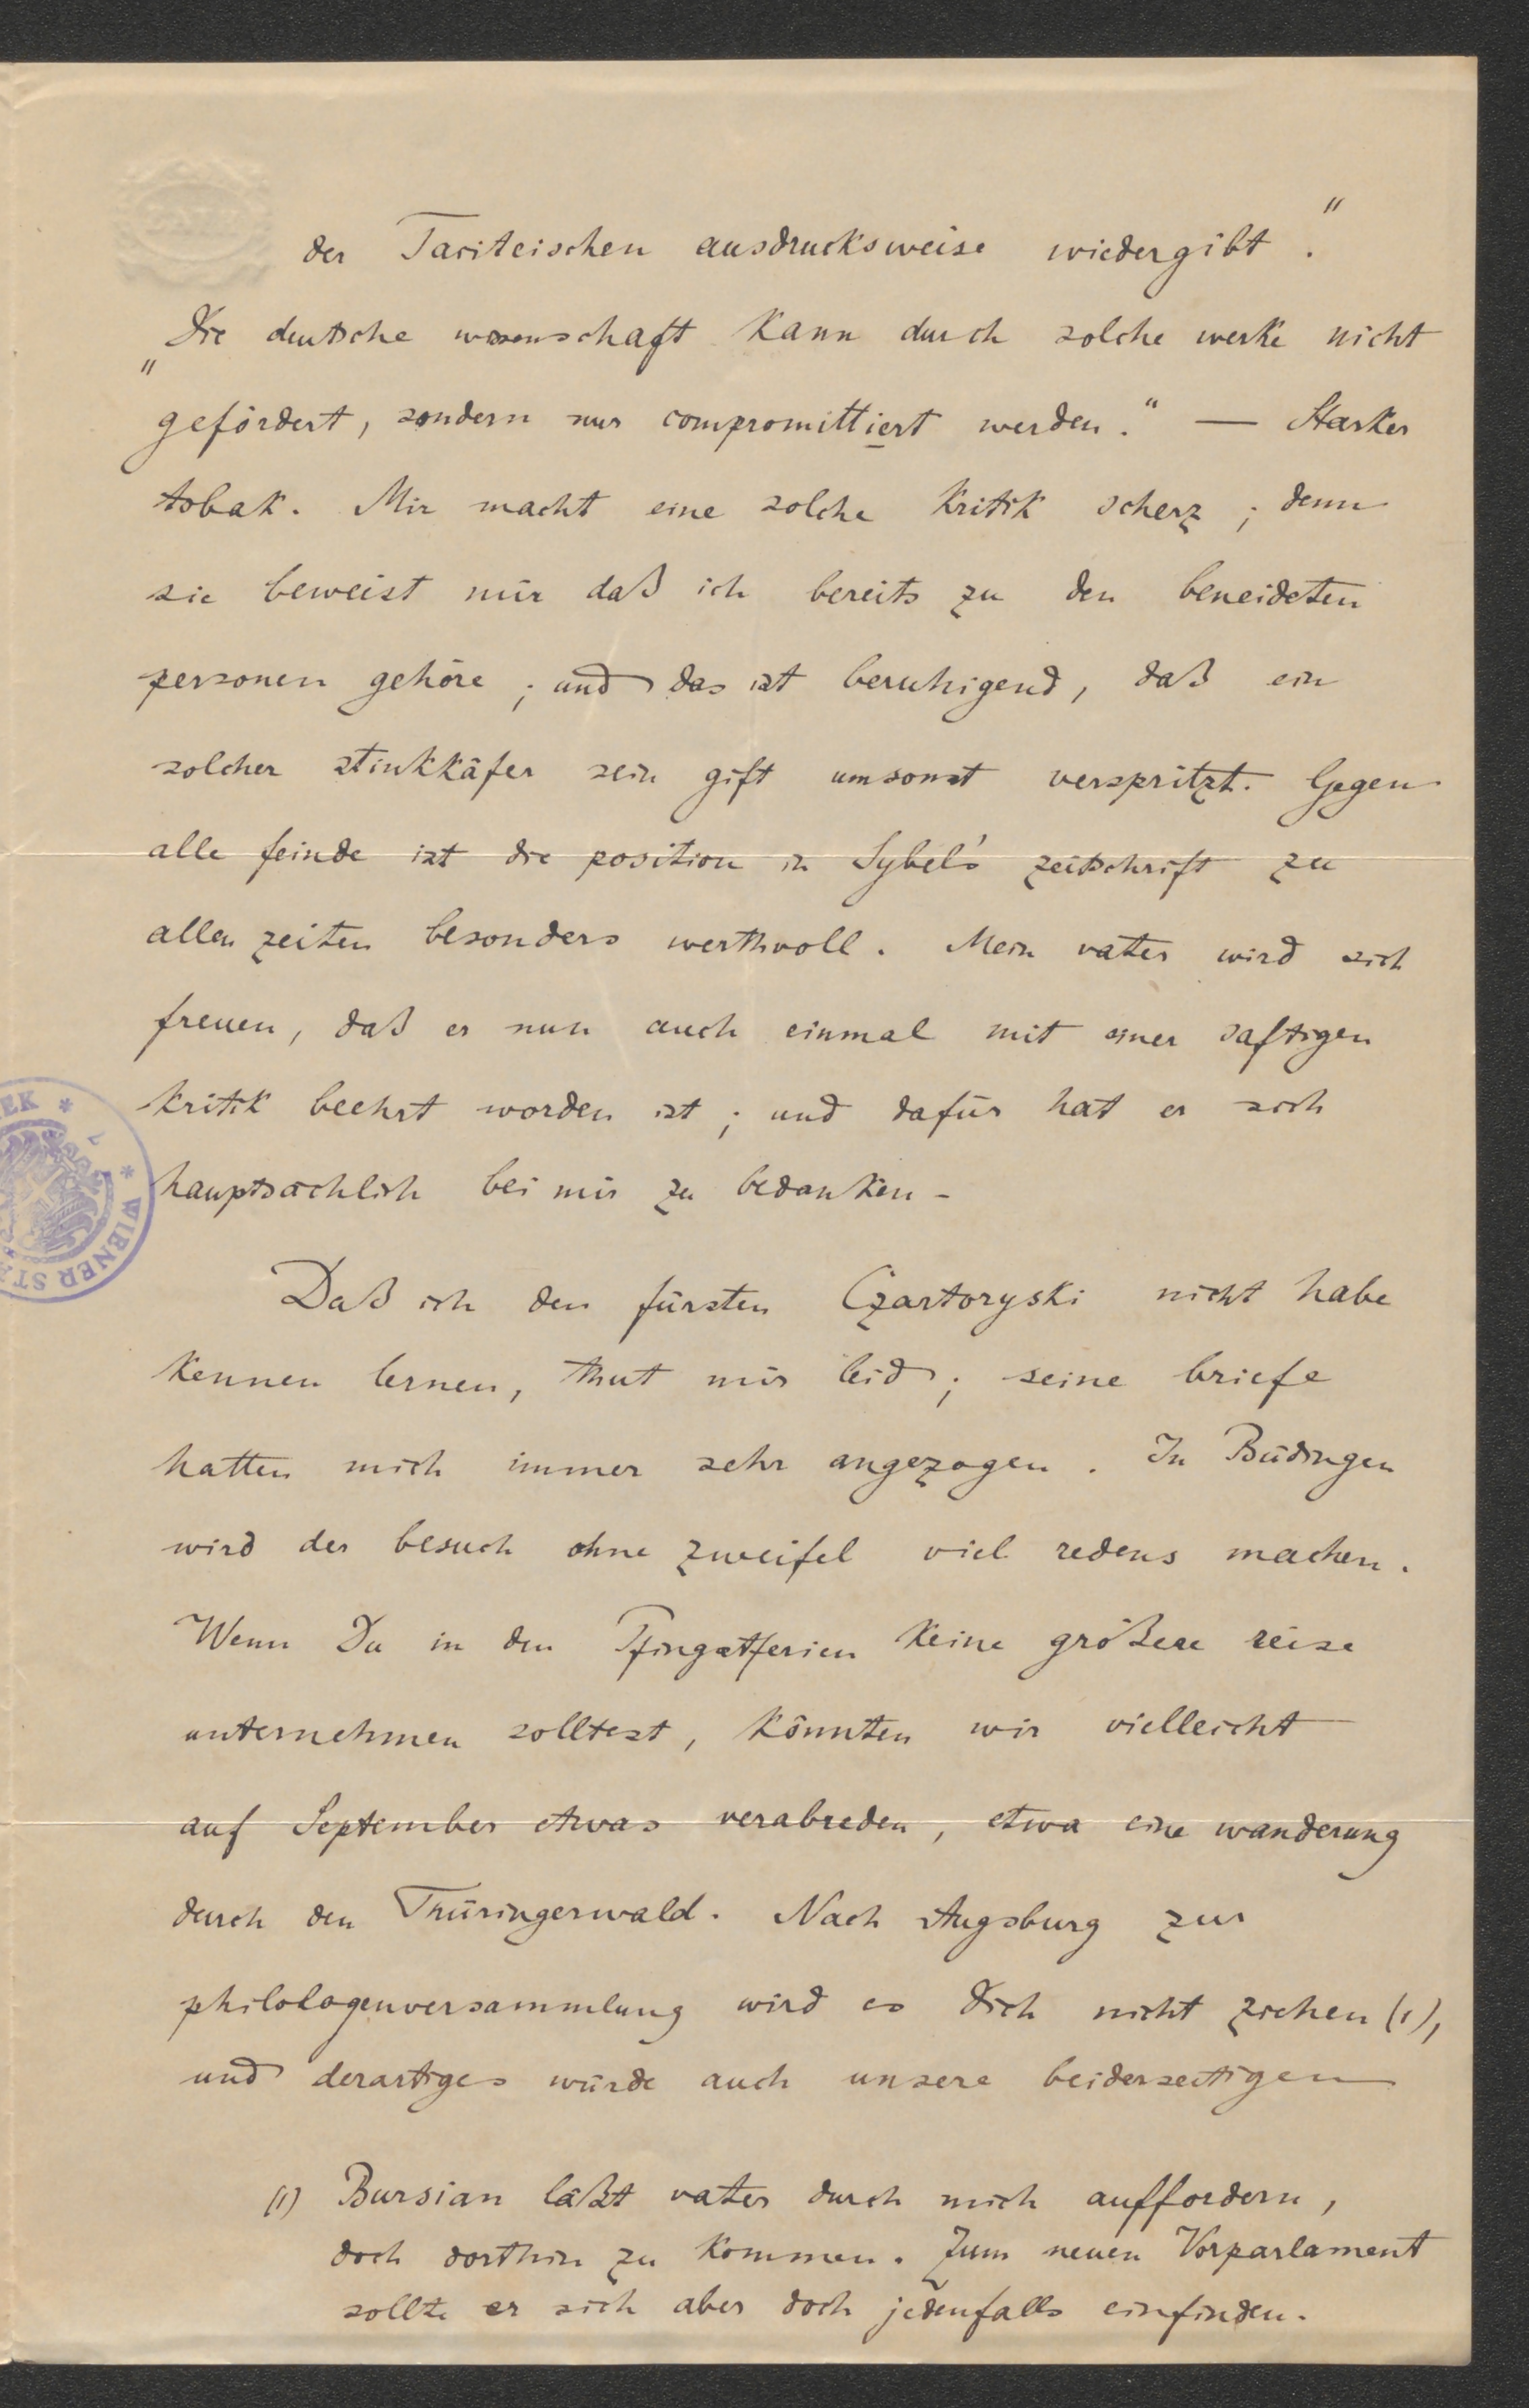 der Taciteischen ausdrucksweise wiedergibt."
„Die deutsche wissenschaft kann durch solche werke nicht
gefördert, sondern nur compromittiert werden." — Starker
tobak. Mir macht eine solche kritik scherz; denn
sie beweist mir daß ich bereits zu den beneideten
personen gehöre; und das ist beruhigend, daß ein
solcher stinkkäfer sein gift umsonst verspritzt. Gegen
alle feinde ist die position in Sybel's zeitschrift zu
allen zeiten besonders werthvoll. Mein vater wird sich
freuen, daß er nun auch einmal mit einer saftigen
kritik beehrt worden ist; und dafür hat er sich
hauptsächlich bei mir zu bedanken -
Daß ich den fürsten Czartoryski nicht habe
kennen lernen, thut mir leid; seine briefe
hatten mich immer sehr angezogen. In Büdingen
wird der besuch ohne zweifel viel redens machen.
Wenn Du in den Pfingstferien keine größere reise
unternehmen solltest, könnten wir vielleicht
auf September etwas verabreden, etwa eine wanderung
durch den Thüringerwald. Nach Augsburg zur
philologenversammlung wird es Dich nicht ziehen (1),
und derartiges würde auch unsere beiderseitigen
(1) Bursian läßt vater durch mich auffordern,
doch dorthin zu kommen. Zum neuen Vorparlament
sollte er sich aber doch jedenfalls einfinden.
EK * * WIENER STA